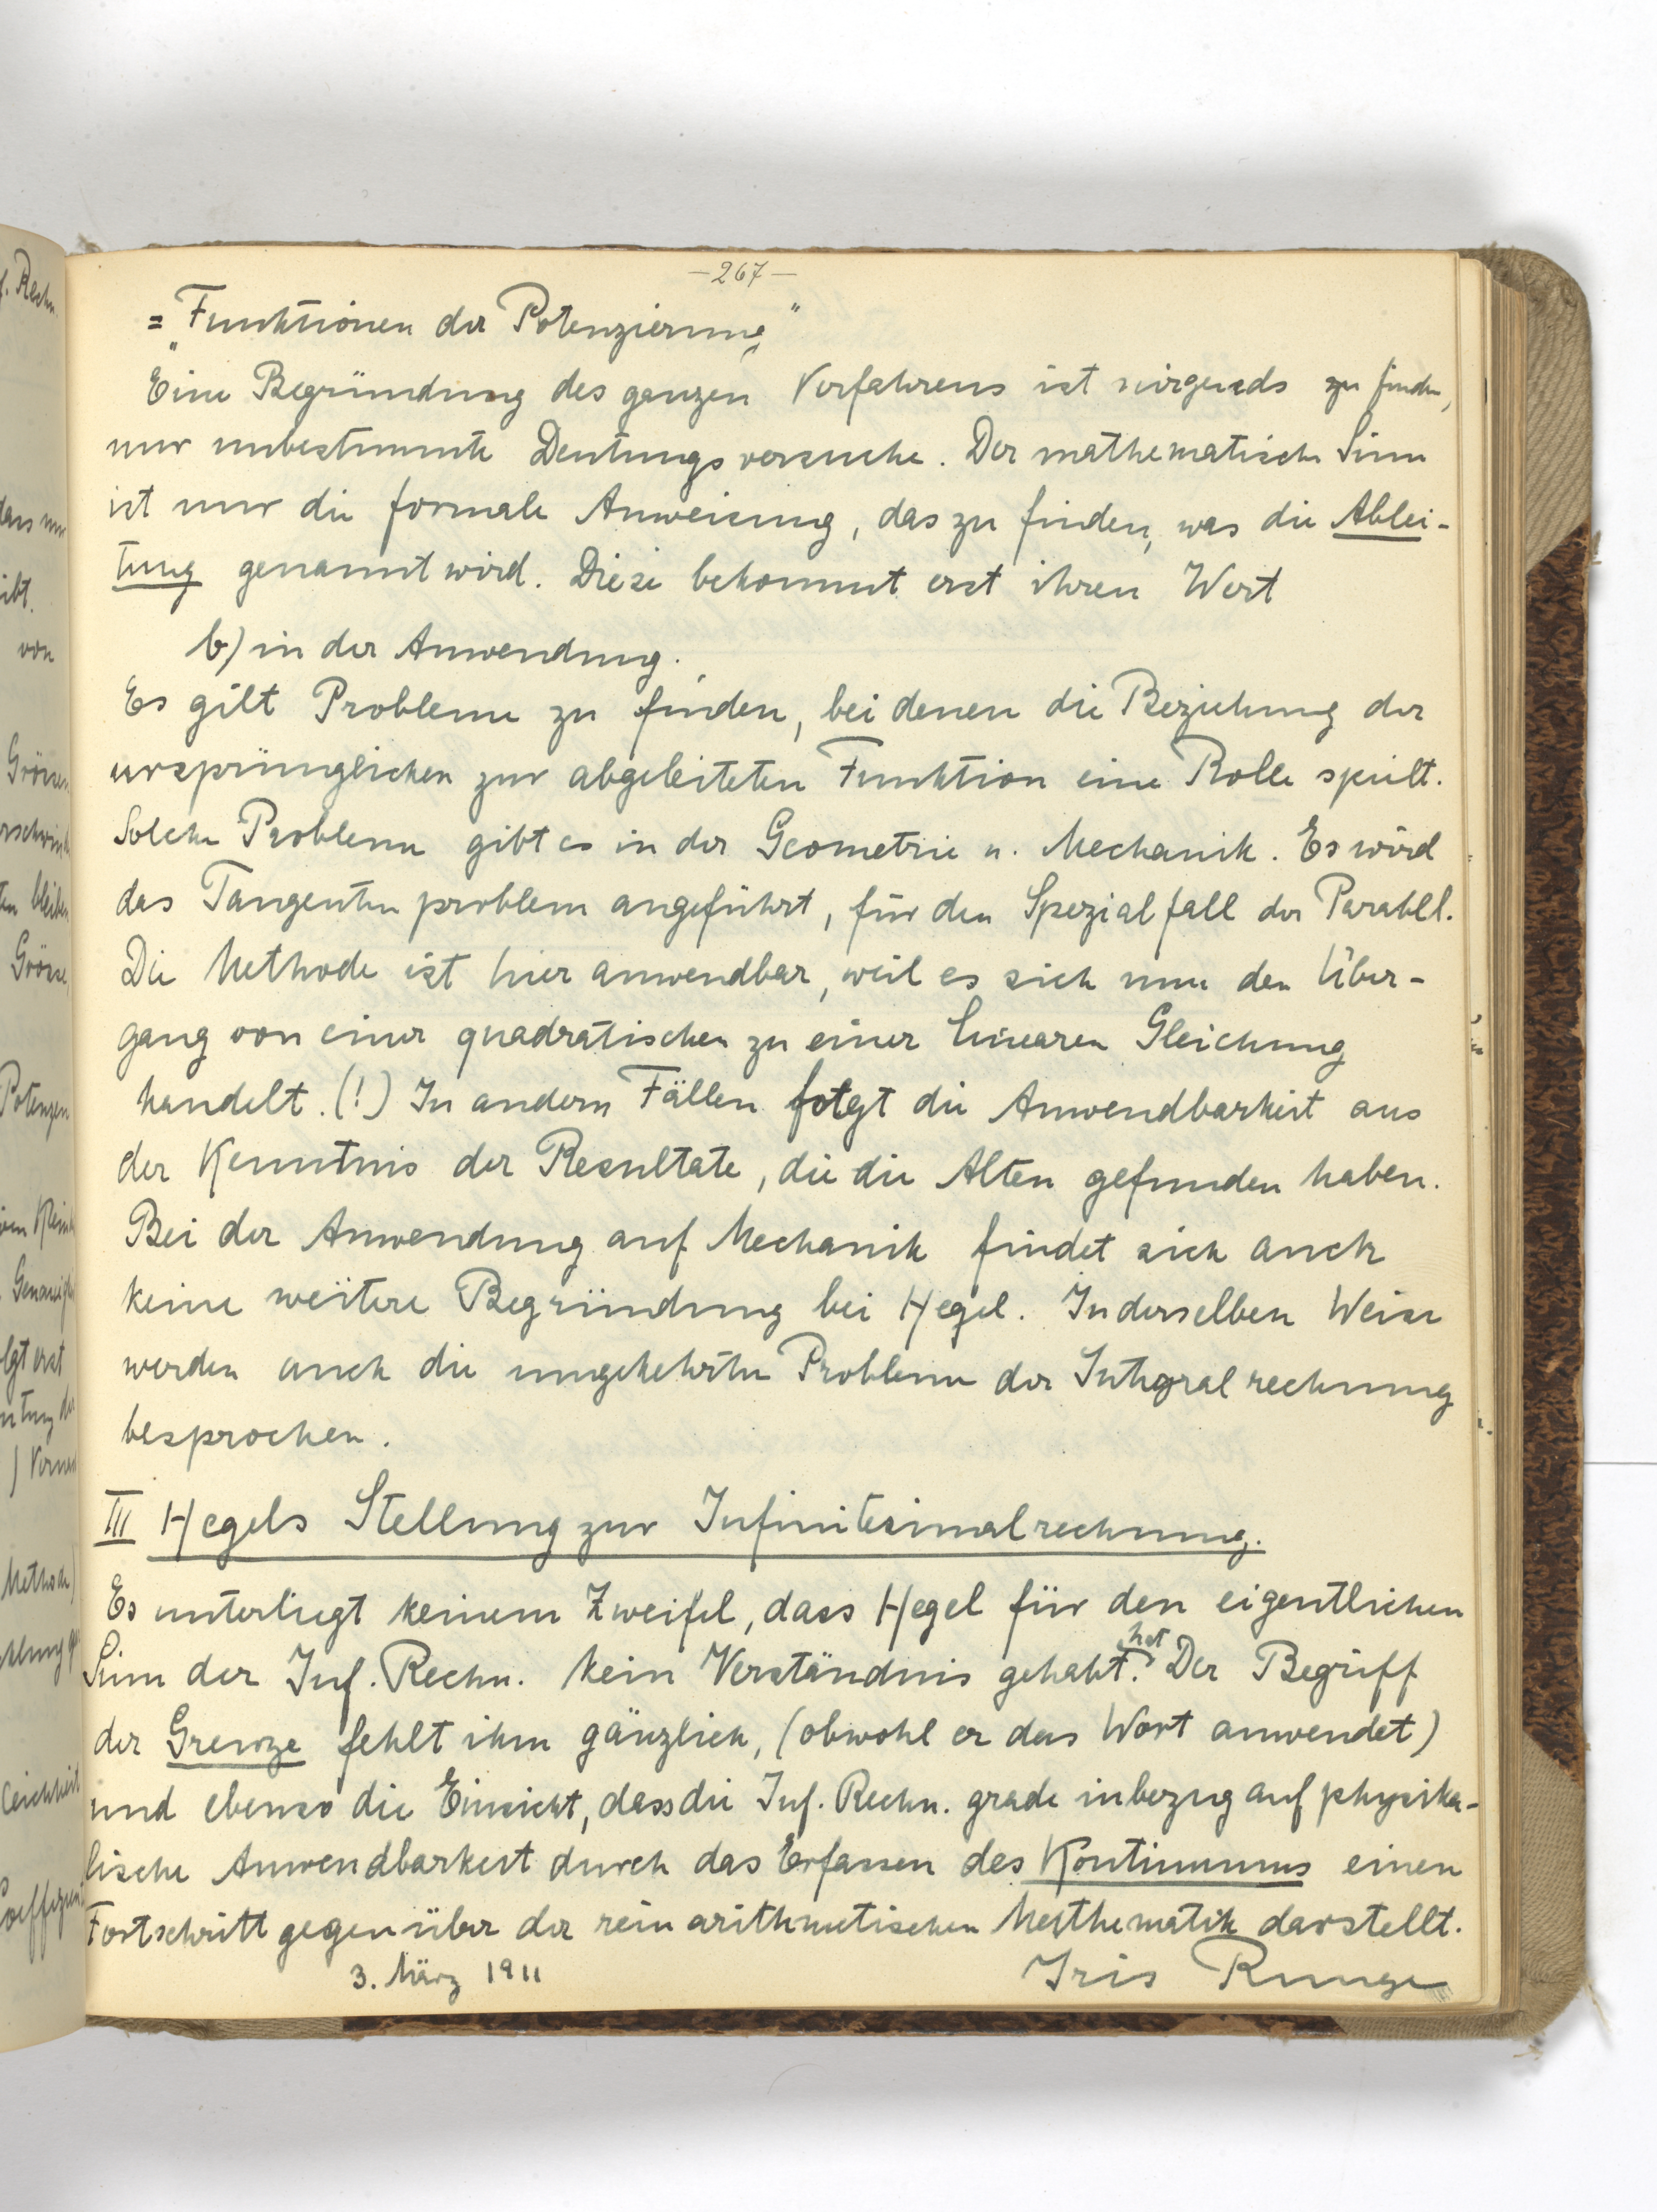 f. Rechn.
dass nur
ibt.
von
Potenzen
lgt erst
Methode)
—267—
= „Funktionen der Potenzierung“
Eine Begründung des ganzen Verfahrens ist nirgends zu finden,
nur unbestimmte Deutungsversuche. Der mathematische Sinn
ist nur die formale Anweisung, das zu finden, was die Ablei-
tung genannt wird. Diese bekommt erst ihren Wert
b) in der Anwendung.
Es gilt Probleme zu finden, bei denen die Beziehung der
ursprünglichen zur abgeleiteten Funktion eine Rolle spielt.
Solche Probleme gibt es in der Geometrie u. Mechanik. Es wird
das Tangentenproblem angeführt, für den Spezialfall der Parabel.
Die Methode ist hier anwendbar, weil es sich um den Über-
gang von einer quadratischen zu einer linearen Gleichung
handelt. (!) In andern Fällen folgt die Anwendbarkeit aus
der Kenntnis der Resultate, die die Alten gefunden haben.
Bei der Anwendung auf Mechanik findet sich auch
keine weitere Begründung bei Hegel. In derselben Weise
werden auch die umgekehrten Probleme der Integralrechnung
besprochen.
III Hegels Stellung zur Infinitesimalrechnung.
Es unterliegt keinem Zweifel, dass Hegel für den eigentlichen
Sinn der Inf. Rechn. kein Verständnis gehabt hat. Der Begriff
der Grenze fehlt ihm gänzlich, (obwohl er das Wort anwendet)
und ebenso die Einsicht, dass die Inf. Rechn. grade inbezug auf physika-
lische Anwendbarkeit durch das Erfassen des Kontinuums einen
Fortschritt gegenüber der rein arithmetischen Mathematik darstellt.
3. März 1911 Iris Runge